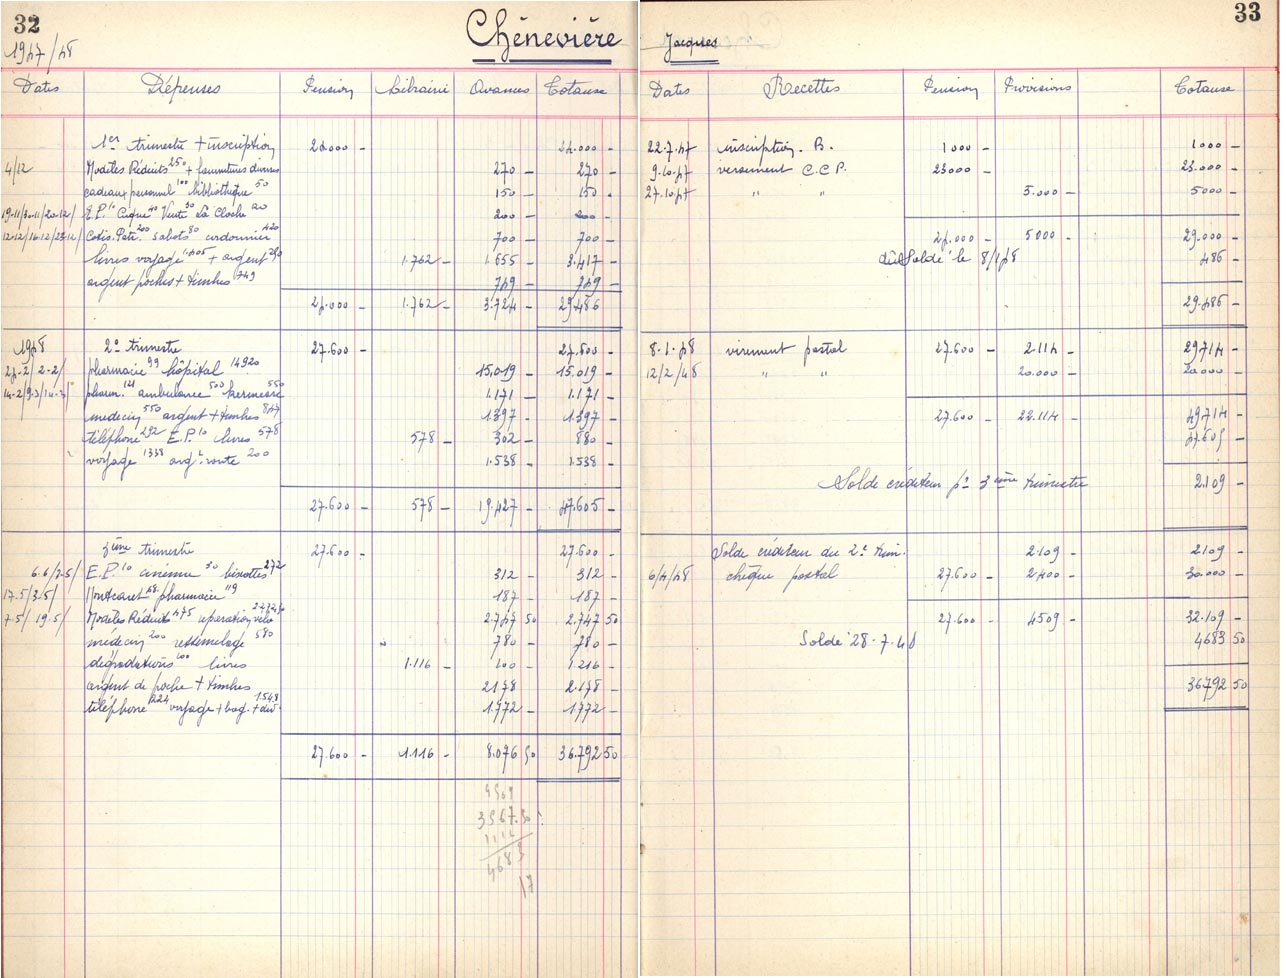 32
1947/48
Chênevière
Dates Dépenses Pension Librairie Avances Totaux
1er trimestre + inscription 24.000 - 24.000 -
4/12 Modèles Réduits 250 + fournitures diverses 270 - 270 -
cadeaux personnel 100 bibliothèque 50 150 - 150 -
19-11/30-11/20-12/ E.P. 10 Cirque 40 Vente 30 La Cloche 20 200 - 200 -
12-12/16-12/23-12/ Cotis. Patr. 200 sabots 80 cordonnier 420 700 - 700 -
livres voyage + argent 250 1.762 - 1.655 3.417 -
argent poches + timbres 749 749 - 749 -
24.000 - 1.762 - 3.724 - 29.486
1948 2e trimestre 27.600 - 27.600 -
24-2/2-2/ pharmacie 99 hôpital 14920 15.019 - 15.019 -
14-2/9-3/14-3/ pharm. 121 ambulance 500 kermesse 550 1.171 - 1.171 -
médecin 550 argent + timbres 847 1397 - 1.397 -
téléphone 292 E.P. 10 livres 578 578 - 302 - 880 -
voyage 1338 argt route 200 1.538 - 1.538 -
27.600 - 578 - 19.427 - 47.605 -
3ème trimestre 27.600 - 27.600 -
6.6/2.5/ E.P. 10 cinéma 30 biscottes 272 312 - 312 -
17.5/3.5/ Montcaret 68 pharmacie 119 187 - 187 -
7.5/19.5/ Modèles Réduits 475 réparation vélo 2272,50 2.747 50 2.747 50
médecin 200 ressemelage 580 780 - 780 -
dégradations 100 livres 1.116 - 100 - 1.216 -
argent de poche + timbres 2178 2.178 -
téléphone 224 voyage + bag. + div. 1.548 1.772 - 1.772 -
27.600 - 1.116 - 8.076 50 36.792 50
4509
3567.50
1116
4683
17
33
Jacques
Dates Recettes Pension Provisions Totaux
22.7.47 inscription. B. 1000 - 1000 -
9.10.47 versement C.C.P. 23000 - 23.000 -
27.10.47 " " 5.000 - 5000 -
24.000 - 5000 - 29.000 -
dû Solde le 8/1/48 486 -
29.486 -
8-1-48 virement postal 27.600 - 2.114 - 29714 -
12/2/48 " " 20.000 - 20.000 -
27.600 - 22.114 - 49714 -
47.605 -
Solde créditeur pr 3ème trimestre 2.109 -
Solde créditeur du 2e trim. 2.109 - 2109 -
6/4/48 chèque postal 27.600 - 2400 - 30.000 -
27.600 - 4509 - 32.109 -
Solde 28-7.48 4683 50
36792 50